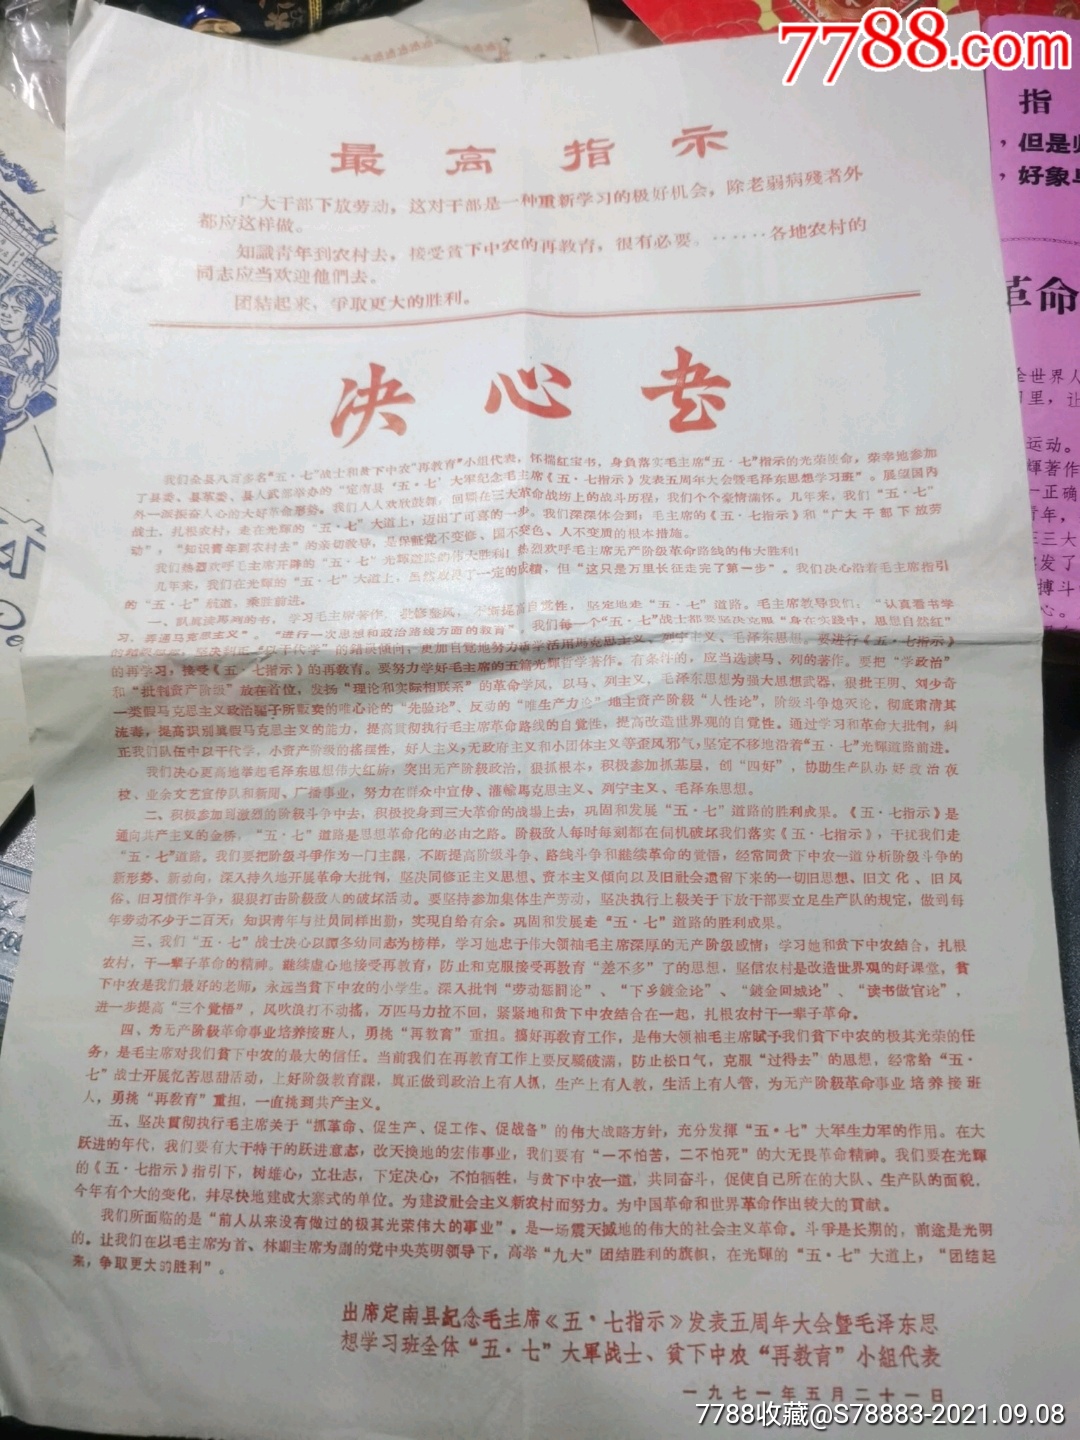 7788.com
最高指示
广大干部下放劳动，这对干部是一种重新学习的极好机会，除老弱病殘者外
都应这样做。
知識青年到农村去，接受貧下中农的再教育，很有必要。······各地农村的
同志应当欢迎他們去。
团結起来，爭取更大的胜利。
决心书
我们全县八百多名“五·七”战士和贫下中农“再教育”小组代表，怀揣红宝书，身负落实毛主席“五·七”指示的光荣使命，荣幸地参加
了县委、县革委、县人武部举办的“定南县‘五·七’大军纪念毛主席《五·七指示》发表五周年大会暨毛泽东思想学习班”。展望国内
外一派振奋人心的大好革命形势，我们人人欢欣鼓舞，回顾在三大革命战场上的战斗历程，我们个个豪情满怀。几年来，我们“五·七”
战士，扎根农村，走在光輝的“五·七”大道上，迈出了可喜的一步。我们深深体会到：毛主席的《五·七指示》和“广大干部下放劳
动”，“知识青年到农村去”的亲切教导，是保証党不变修、国不变色、人不变质的根本措施。
我们热烈欢呼毛主席开辟的“五·七”光輝道路的伟大胜利！热烈欢呼毛主席无产阶级革命路线的伟大胜利！
几年来，我们在光輝的“五·七”大道上，虽然取得了一定的成績，但“这只是万里长征走完了第一步”。我们决心沿着毛主席指引
的“五·七”航道，乘胜前进。
一、认真读马列的书，学习毛主席著作，批修整风，不断提高自觉性，坚定地走“五·七”道路。毛主席教导我们：“认真看书学
习，弄通马克思主义”。“进行一次思想和政治路线方面的教育”，我们每一个“五·七”战士都要坚决克服“身在实践中，思想自然红”
的糊涂观念，坚决纠正“以干代学”的错误傾向，更加自觉地努力活学活用马克思主义、列宁主义、毛泽东思想。要进行《五·七指示》
的再学习，接受《五·七指示》的再教育。要努力学好毛主席的五篇光輝哲学著作。有条件的，应当选读马、列的著作。要把“学政治”
和“批判资产阶级”放在首位，发扬“理论和实际相联系”的革命学风，以马、列主义，毛泽东思想为强大思想武器，狠批王明、刘少奇
一类假马克思主义政治骗子所贩卖的唯心论的“先验论”、反动的“唯生产力论”地主资产阶级“人性论”，阶级斗争熄灭论，彻底肃清其
流毒，提高识别真假马克思主义的能力，提高貫彻执行毛主席革命路线的自觉性，提高改造世界观的自觉性。通过学习和革命大批判，糾
正我们队伍中以干代学，小资产阶级的搖摆性，好人主义，无政府主义和小团体主义等歪风邪气，坚定不移地沿着“五·七”光輝道路前进。
我们决心更高地举起毛泽东思想伟大红旗，突出无产阶级政治，狠抓根本，积极参加抓基层，创“四好”，协助生产队办好政治夜
校、业余文艺宣传队和新聞、广播事业，努力在群众中宣传、灌輸馬克思主义、列宁主义、毛泽东思想。
二、积极参加到激烈的阶级斗争中去，积极投身到三大革命的战場上去，巩固和发展“五·七”道路的胜利成果。《五·七指示》是
通向共产主义的金桥，“五·七”道路是思想革命化的必由之路。阶级敌人每时每刻都在伺机破坏我们落实《五·七指示》，干扰我们走
“五·七”道路。我们要把阶级斗爭作为一门主課，不断提高阶级斗争、路线斗争和继续革命的覚悟，经常同贫下中农一道分析阶级斗争的
新形势、新动向，深入持久地开展革命大批判，坚决同修正主义思想、资本主义傾向以及旧社会遗留下来的一切旧思想、旧文化、旧风
俗、旧习惯作斗争，狠狠打击阶级敌人的破坏活动。要坚持参加集体生产劳动，坚决执行上級关于下放干部要立足生产队的规定，做到每
年劳动不少于二百天；知识青年与社员同样出勤，实现自給有余。巩固和发展走“五·七”道路的胜利成果。
三、我们“五·七”战士决心以譚冬幼同志为榜样，学习她忠于伟大领袖毛主席深厚的无产阶级感情；学习她和貧下中农結合，扎根
农村，干一輩子革命的精神。继续虚心地接受再教育，防止和克服接受再教育“差不多”了的思想，坚信农村是改造世界观的好课堂，貧
下中农是我们最好的老师，永远当贫下中农的小学生。深入批判“劳动惩罰论”、“下乡鍍金论”、“鍍金回城论”、“读书做官论”，
进一步提高“三个覺悟”，风吹浪打不动搖，万匹马力拉不回，紧紧地和贫下中农结合在一起，扎根农村干一辈子革命。
四、为无产阶级革命事业培养接班人，勇挑“再教育”重担。搞好再教育工作，是伟大领袖毛主席赋予我们贫下中农的极其光荣的任
务，是毛主席对我们貧下中农的最大的信任。当前我们在再教育工作上要反驕破满，防止松口气，克服“过得去”的思想，经常給“五·
七”战士开展忆苦思甜活动，上好阶级教育課，眞正做到政治上有人抓，生产上有人教，生活上有人管，为无产阶级革命事业培养接班
人，勇挑“再敎育”重担，一直挑到共产主义。
五、坚决貫彻执行毛主席关于“抓革命、促生产、促工作、促战备”的伟大战略方針，充分发揮“五·七”大军生力军的作用。在大
跃进的年代，我们要有大干特干的跃进意志，改天换地的宏伟事业，我们要有“一不怕苦，二不怕死”的大无畏革命精神。我们要在光輝
的《五·七指示》指引下，树雄心，立壮志，下定决心，不怕犧牲，与贫下中农一道，共同奋斗，促使自己所在的大队、生产队的面貌，
今年有个大的变化，并尽快地建成大寨式的单位。为建设社会主义新农村而努力。为中国革命和世界革命作出较大的貢献。
我们所面临的是“前人从来没有做过的极其光荣伟大的事业”。是一场震天撼地的伟大的社会主义革命。斗爭是长期的，前途是光明
的。让我们在以毛主席为首、林副主席为副的党中央英明领导下，高举“九大”团结胜利的旗帜，在光輝的“五·七”大道上，“团结起
来，争取更大的胜利”。
出席定南县紀念毛主席《五·七指示》发表五周年大会暨毛泽东思
想学习班全体“五·七”大軍战士、贫下中农“再教育”小组代表
一九七一年五月二十一日
指
，但是
，好象
革命
全世界人
里，让
运动。
輝著作
一正确
青年，
三大
发了
搏斗
心。
7788收藏@S78883-2021.09.08